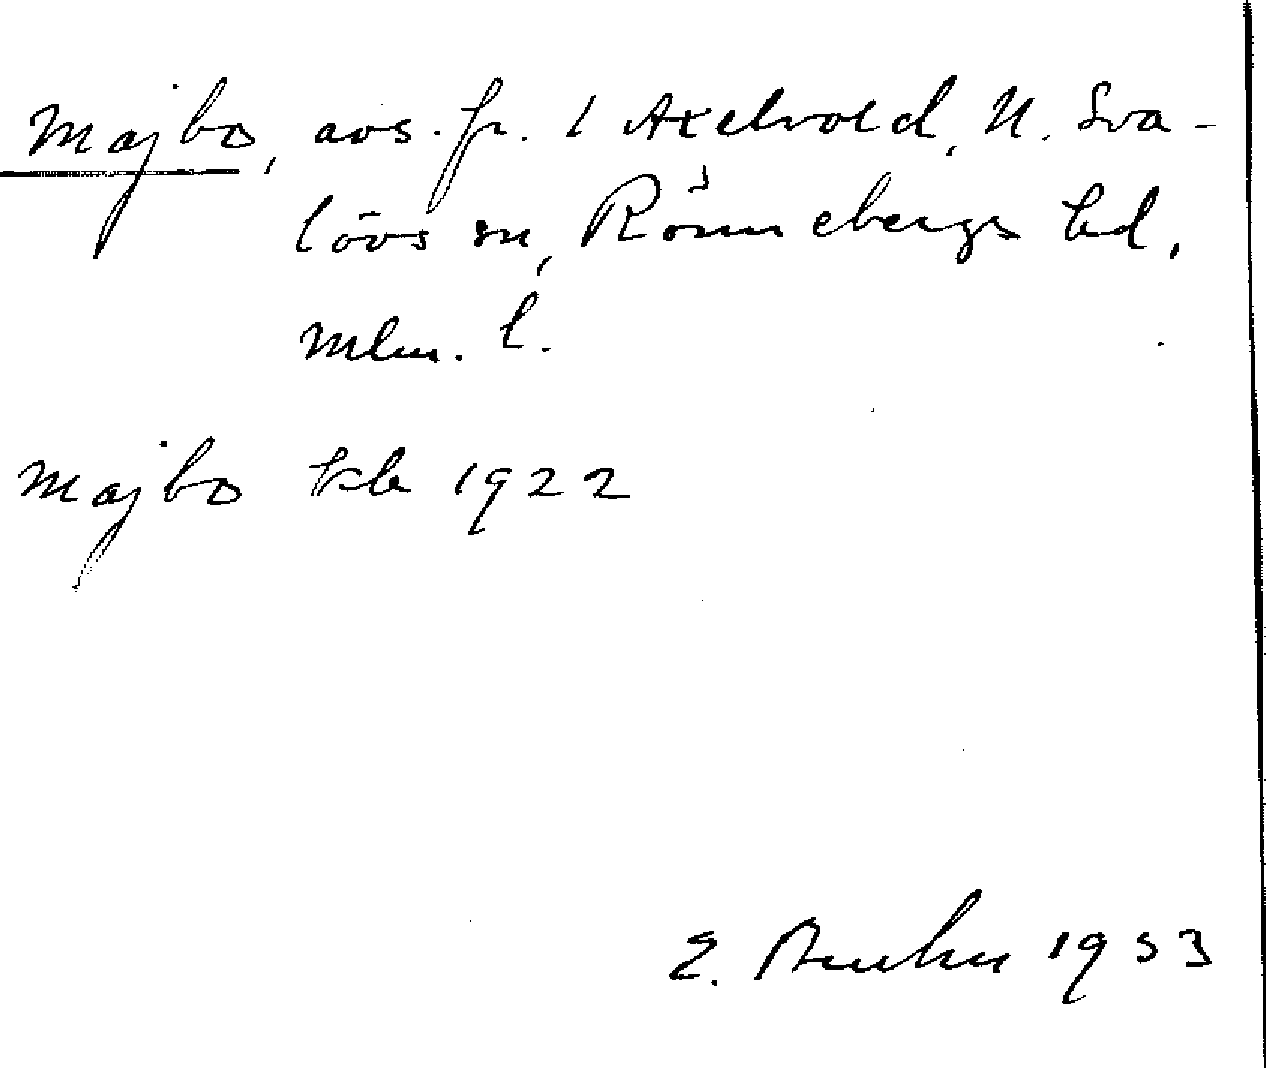 Majbo, avs. fr. 1 Axelvold, N. Sva-
lövs sn, Rönnebergs hd,
Mlm. l.
Majbo kb 1922
E. 1953